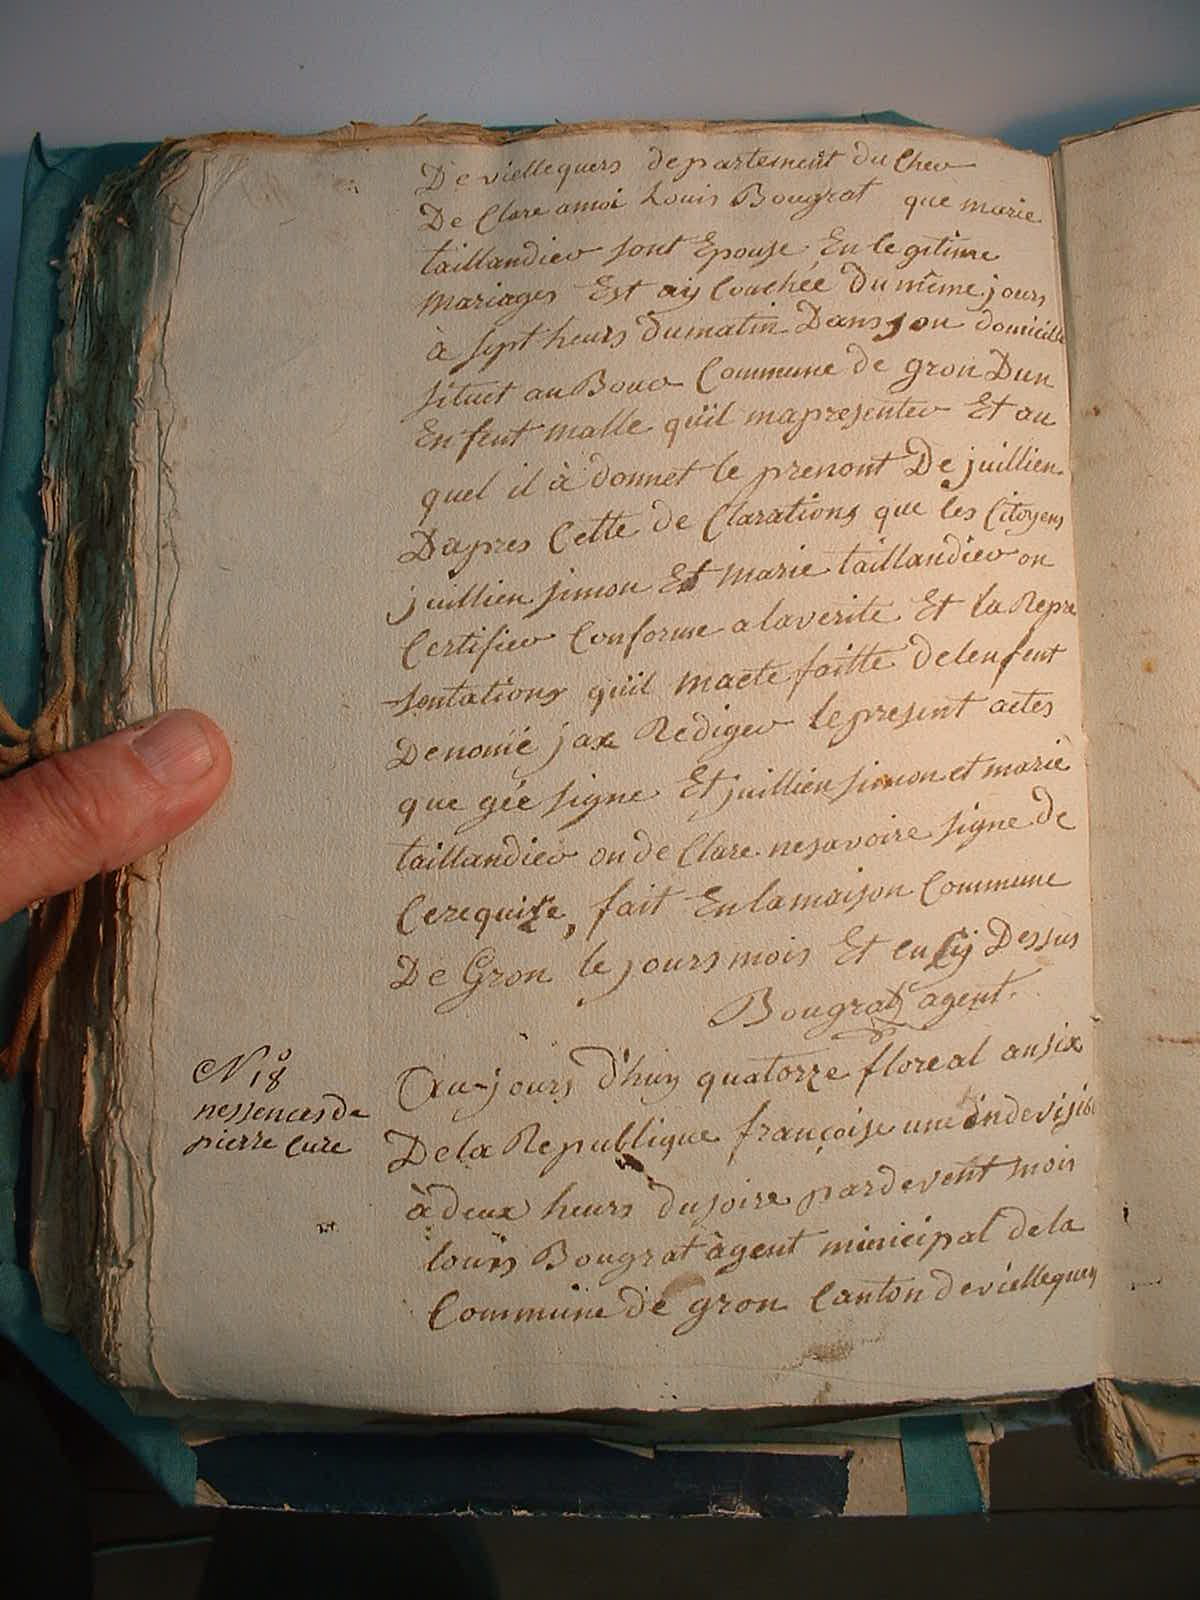 De viellequers departement du Cher
De Clare amoi Louis Bougrat que marie
taillandier sont Epouse En legitime
mariages Est aij Couchée Du même jours
à sept heurs Dumatin Dans son domicille
situet au Bour Commune de gron Dun
Enfent malle quïl mapresenter Et au
quel il à donnet le prenont De juillien
Dapres Cette de Clarations que les Citoyens
juillien simon Et marie taillandier on
Certifier Conforme alaverite Et la Repre
sentations quïl maete faitte delenfent
Denomé jax Rediger lepresent actes
que gée signe Et juillien simon et marie
taillandier onde Clare nesavoire signe de
Cerequise, fait Enlamaison Commune
De Gron le jours mois Et en Cij Dessus
Bougrat agent.
N° 18
nessences de
pierre Cure
Au-jours d'huy quatorze floreal an six
Dela Republique françoise une indevisibl
à deux heurs dusoire pardevent mois
louis Bougrat àgent municipal dela
Commune de gron Canton deviellequers